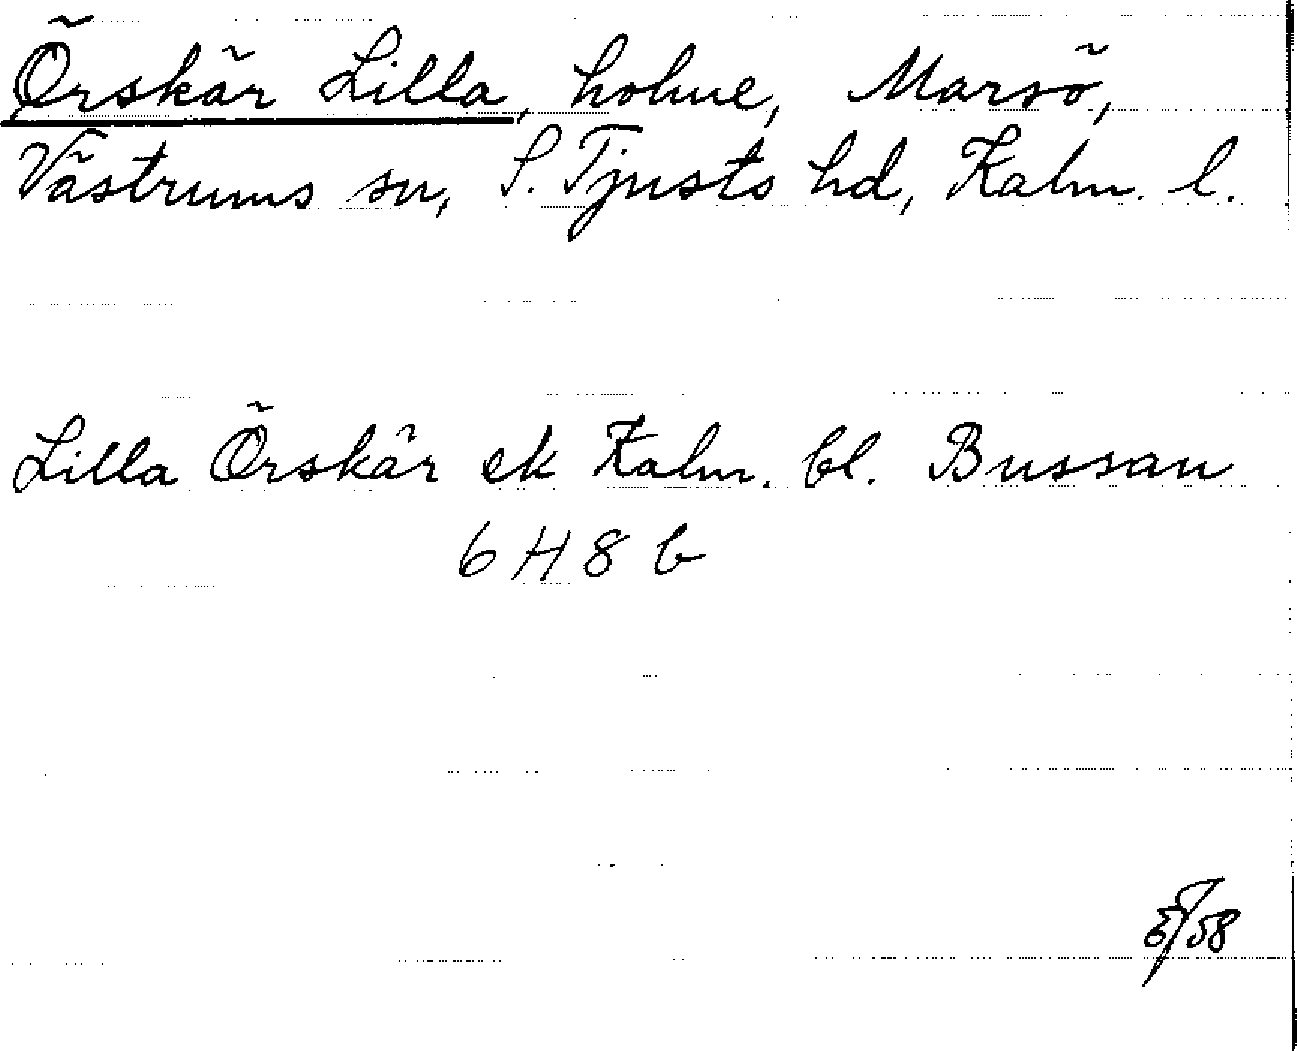 Örskär Lilla, holme, Marsö,
Västrums sn, S. Tjusts hd, Kalm. l.
Lilla Örskär ek Kalm. bl. Bussan
6 H 8 b